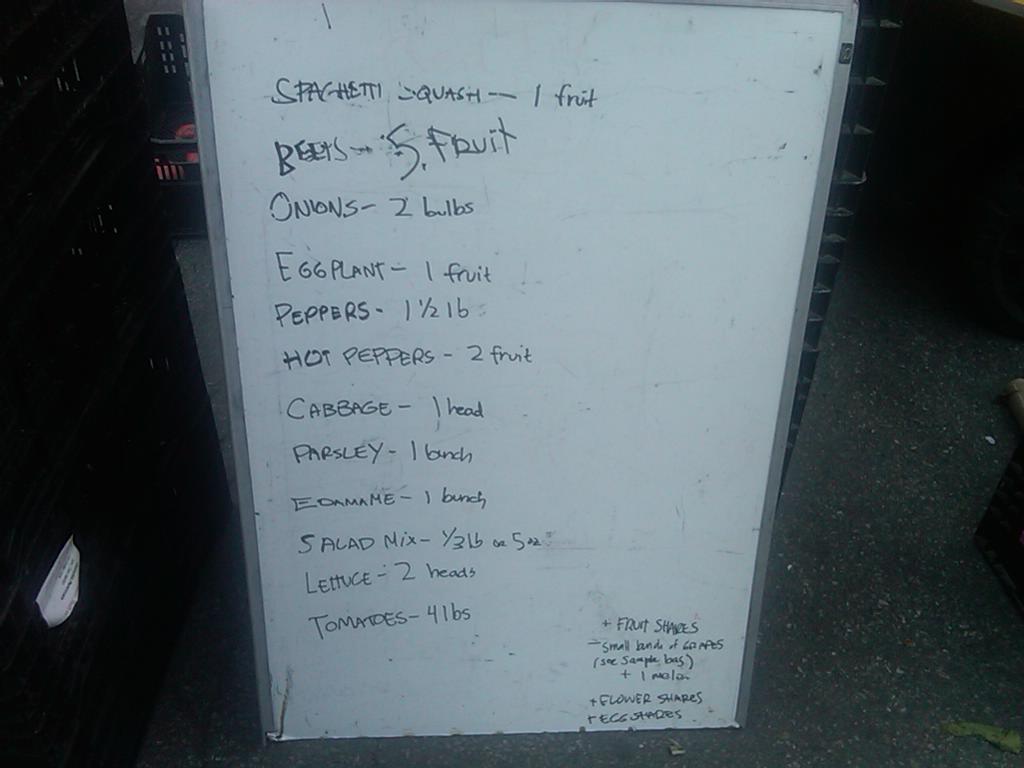 SPAGHETTI SQUASH -- 1 fruit
BEETS - 5. FRUIT
ONIONS - 2 bulbs
EGGPLANT - 1 fruit
PEPPERS - 1 1/2 lb
HOT PEPPERS - 2 fruit
CABBAGE - 1 head
PARSLEY - 1 bunch
EDAMAME - 1 bunch
SALAD MIX - 1/3 lb or 5 oz
LETTUCE - 2 heads
TOMATOES - 4 lbs
+ FRUIT SHARES
- small bunch of GRAPES
(see sample bag)
+ 1 melon
+ FLOWER SHARES
+ EGG SHARES